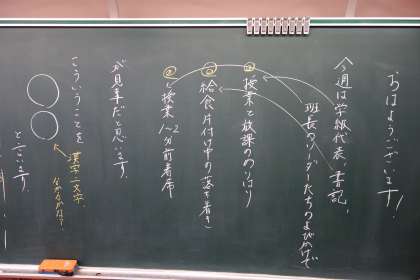 おはようございます！
今週は学級代表、書記、
班長のリーダーたちのよびかけで
①授業と放課のメリハリ
②給食片付け中の落ち着き
③授業1〜2分前着席
が見事だと思います。
こういうことを
漢字二文字
なんかな？
と言います。